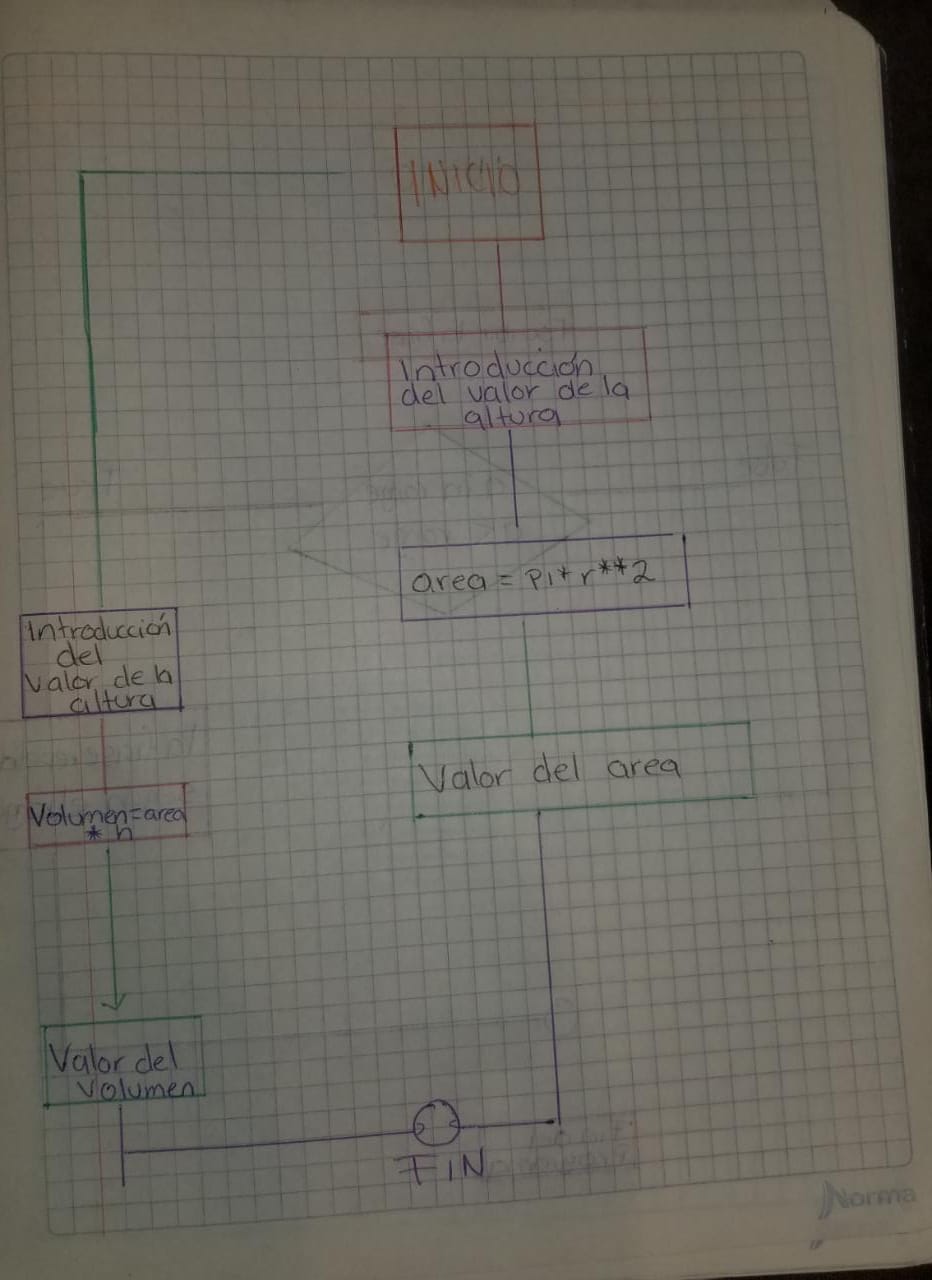 INICIO
Introducción
del valor de la
altura
area = Pi * r**2
Valor del area
Introducción
del
valor de la
altura
Volumen=area
* h
Valor del
Volumen
FIN
Norma